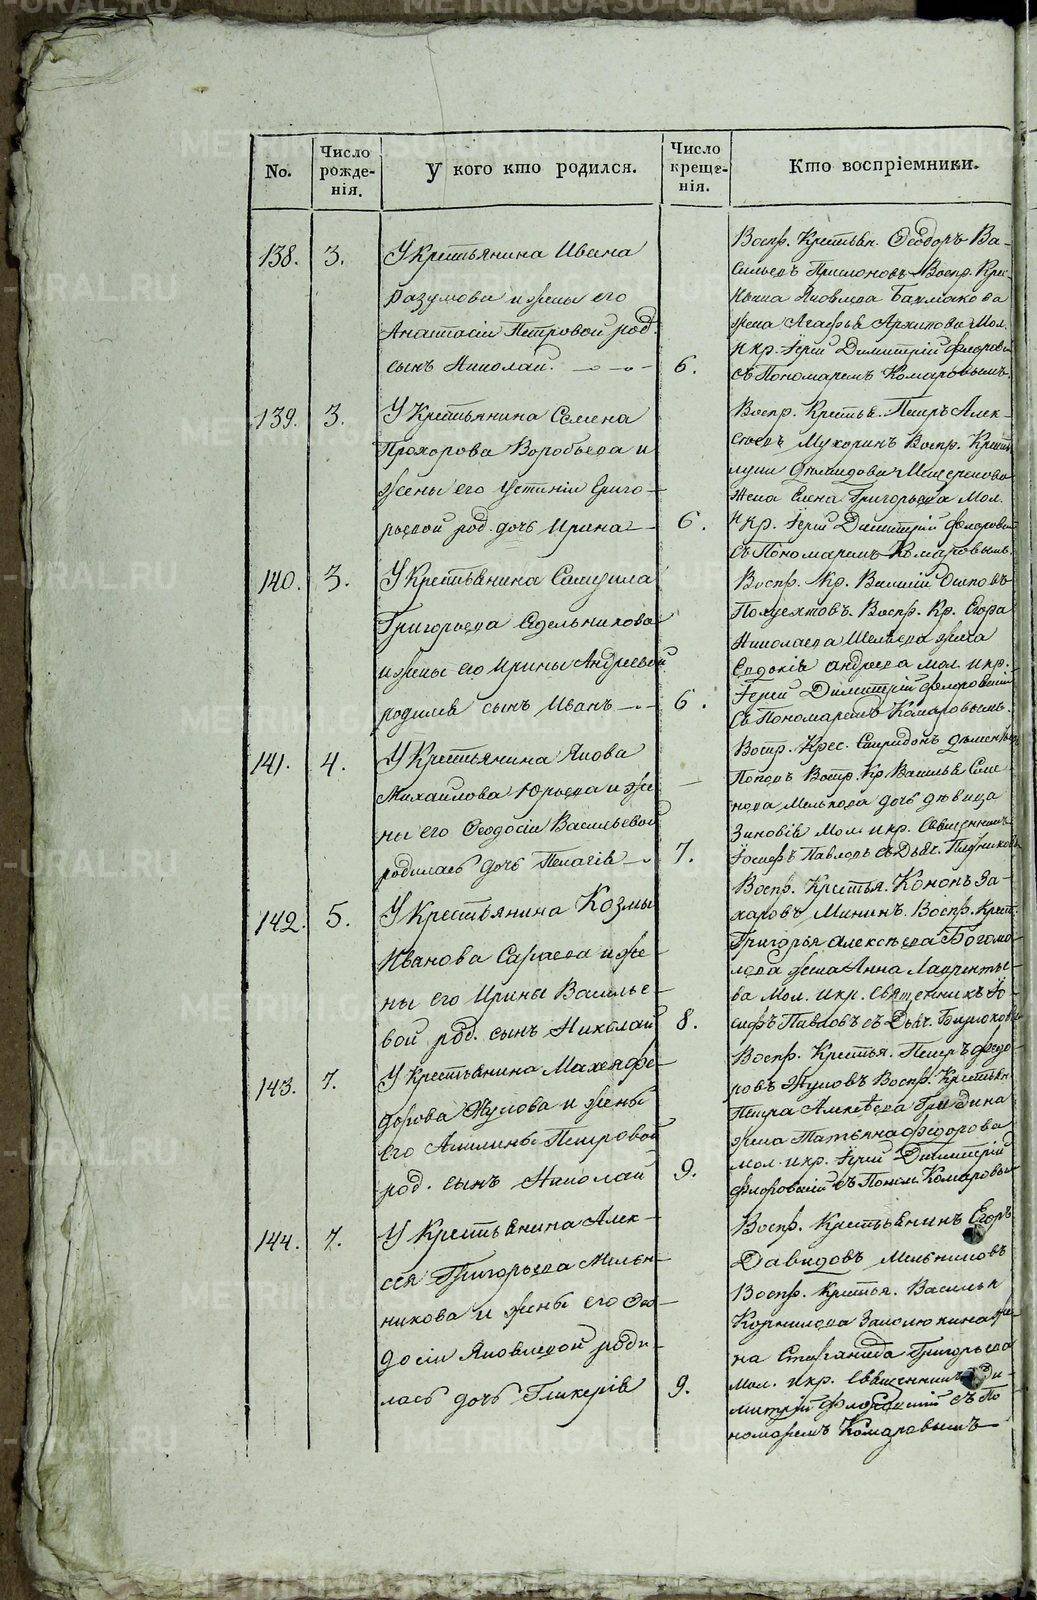 No.
Число рожде-нія.
У кого кто родился.
Число креще-нія.
Кто воспріемники.
138. 3.
У Крестьянина Ивана
Разумова и жены его
Анастасіи Петровой род.
сынъ Николай. 6.
Воспр. Крестьян. Ѳеодоръ Ва-
сильевъ Воспр. Кре-
Яковлева Бахмакова
жена Агафья Архипова Мол.
и кр. Іерей Димитрій Флоровскій
съ Пономаремъ Комаровымъ.
139. 3.
У Крестьянина Семена
Прохорова Воробьева и
жены его Устиніи Григо-
рьевой род. дочь Ирина 6.
Воспр. Крестья. Петръ Алек-
сѣевъ Мухоринъ Воспр. Крестья
жена Елена Григорьева Мол.
и кр. Іерей Димитрій Флоровскій
съ Пономаремъ Комаровымъ.
140. 3.
У Крестьянина Самуила
Григорьева Сдельникова
и жены его Ирины Андреевой
родился сынъ Иванъ 6.
Воспр. Кр. Василій Осиповъ
Полуектовъ. Воспр. Кр. Егора
Николаева жена
Евдокія Андреева мол. и кр.
Іерей Димитрій Флоровскій
съ Пономаремъ Комаровымъ.
141. 4.
У Крестьянина Якова
Михайлова Юрьева и же-
ны его Ѳеодосіи Васильевой
родилась дочь Пелагія 7.
Воспр. Крес. Спиридонъ
Поповъ Воспр. Кр. Василья Семе-
нова дочь дѣвица
Зиновія Мол. и кр. Священникъ
Іосифъ Павловъ съ Дьяч.
142. 5.
У Крестьянина Козмы
Иванова Сараева и же-
ны его Ирины Василье-
вой род. сынъ Николай 8.
Воспр. Крестья. Кононъ За-
харовъ Мининъ. Воспр. Крест.
Григорья Алексѣева Богомо-
лова жена Анна Лаврентье-
ва Мол. и кр. Священникъ Іо-
сифъ Павловъ съ Дьяч.
143. 7.
У Крестьянина Макея Фе-
дорова Жулова и жены
его Акилины Петровой
род. сынъ Николай 9.
Воспр. Крестья. Петръ Федо-
ровъ Жуловъ Воспр. Крестьян
Петра Алексѣева Гридина
жена Татьяна Федорова
мол. и кр. Іерей Димитрій
Флоровскій съ Поном. Комаровым
144. 7.
У Крестьянина Алек-
сея Григорьева Мельн-
никова и жены его Ѳео-
досіи Яковлевой роди-
лась дочь Гликерія 9.
Воспр. Крестьянинъ Егоръ
Давидовъ Мельниковъ
Воспр. Крестья. Василья
Корнилова же-
на Степанида Григорьева
Мол. и кр. Священникъ Ди-
митрій Флоровскій съ По-
номаремъ Комаровымъ
METRIKI.GASO-URAL.RU